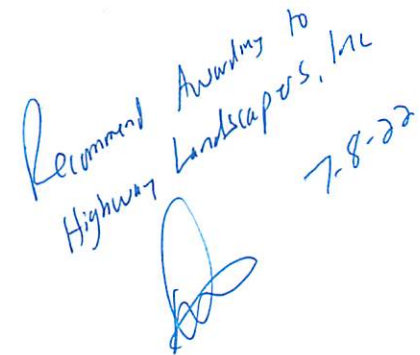 Recommend Awarding to
Highway Landscapers, Inc
7-8-22